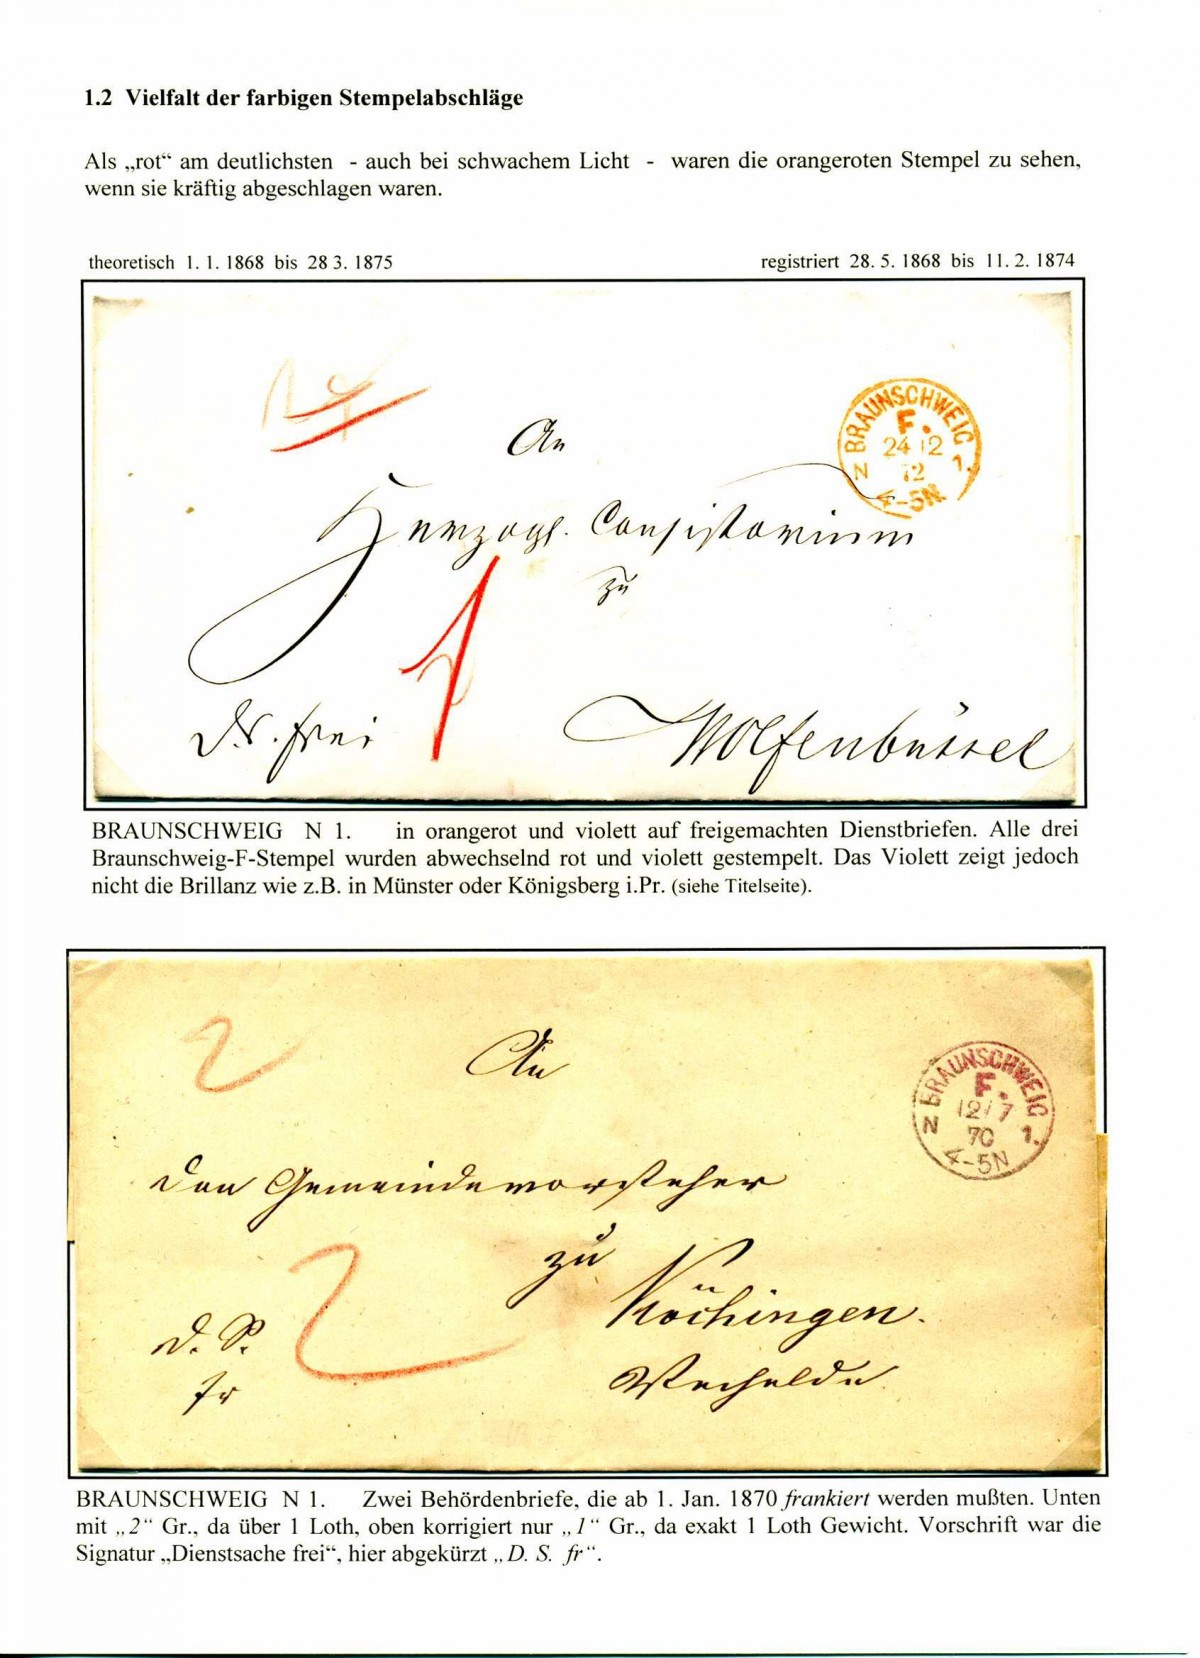 1.2 Vielfalt der farbigen Stempelabschläge
Als „rot“ am deutlichsten - auch bei schwachem Licht - waren die orangeroten Stempel zu sehen,
wenn sie kräftig abgeschlagen waren.
theoretisch 1. 1. 1868 bis 28 3. 1875
registriert 28. 5. 1868 bis 11. 2. 1874
BRAUNSCHWEIG
F.
24 12
72
N 1.
4-5N
An
Herzogl. Consistorium
zu
1
D.S. frei
Wolfenbüttel
BRAUNSCHWEIG N 1. in orangerot und violett auf freigemachten Dienstbriefen. Alle drei
Braunschweig-F-Stempel wurden abwechselnd rot und violett gestempelt. Das Violett zeigt jedoch
nicht die Brillanz wie z.B. in Münster oder Königsberg i.Pr. (siehe Titelseite).
2
BRAUNSCHWEIG
F.
12 7
70
N 1.
4-5N
An
den Gemeindevorsteher
zu
Köchingen.
2
D. S.
fr
Vechelde
BRAUNSCHWEIG N 1. Zwei Behördenbriefe, die ab 1. Jan. 1870 frankiert werden mußten. Unten
mit „2“ Gr., da über 1 Loth, oben korrigiert nur „1“ Gr., da exakt 1 Loth Gewicht. Vorschrift war die
Signatur „Dienstsache frei“, hier abgekürzt „D. S. fr“.